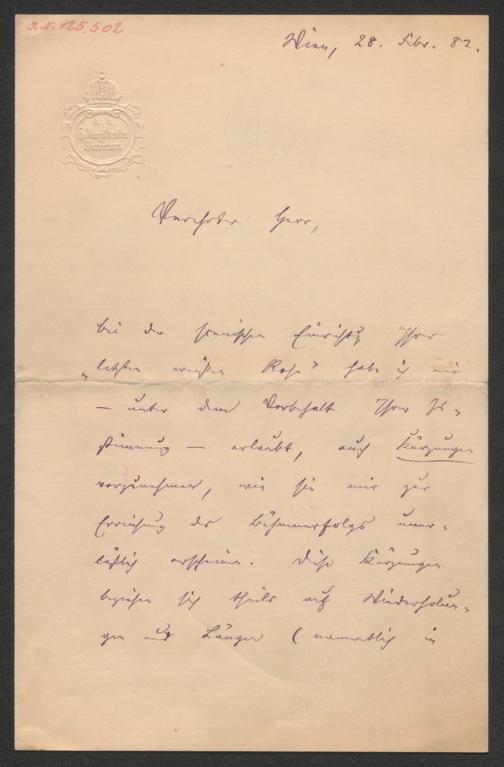 J.N. 125.502
Wien, 28. Febr. 82.
K. K.
Burgtheater
Verehrter Herr,
bei der scenischen Einrichtg Ihrer
„letzten weißen Rose“ habe ich mir
— unter dem Vorbehalt Ihrer Zu-
stimmung — erlaubt, auch Kürzungen
vorzunehmen, wie sie mir zur
Erreichung des Bühnenerfolgs uner-
läßlich erscheinen. Diese Kürzungen
beziehen sich theils auf Wiederholun-
gen und Längen (namentlich in